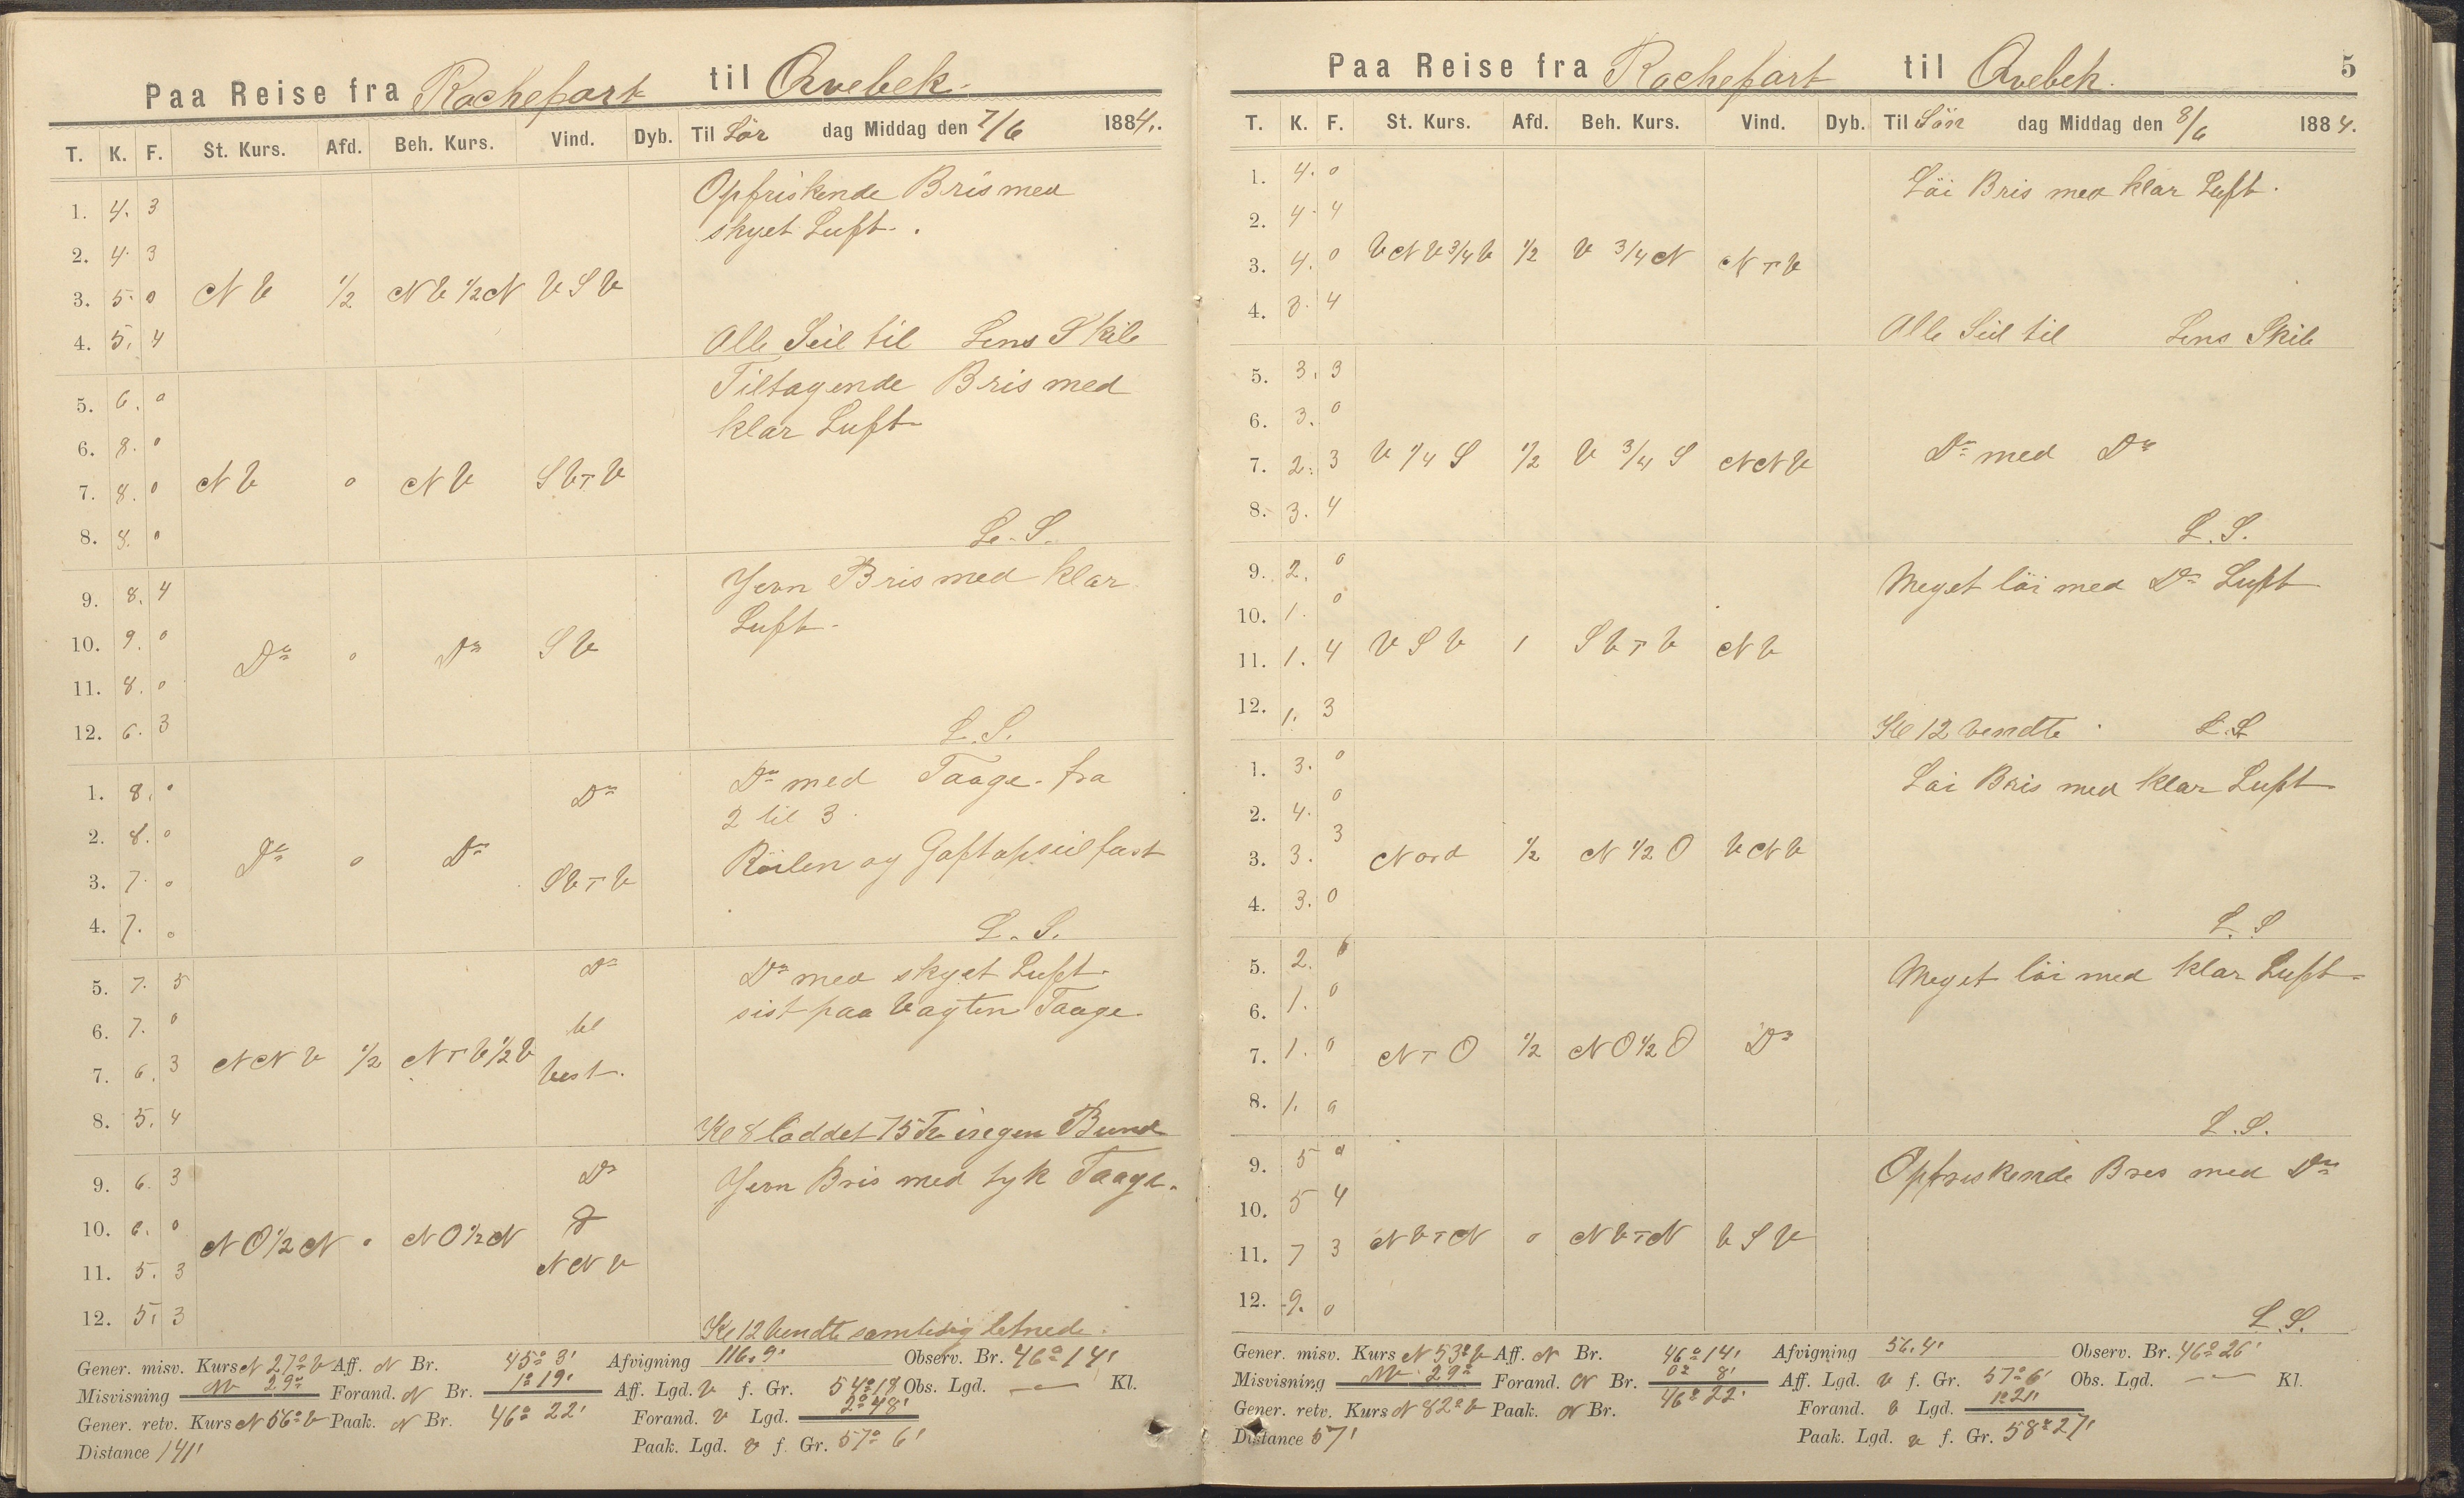 Paa Reise fra Rochefort til Qvebek.
T. K. F. St. Kurs. Afd. Beh. Kurs. Vind. Dyb. Til Lör dag Middag den 7/6 1884.
Opfriskende Bris med
1. 4. 3
skyet Luft.
2. 4. 3
3. 5. 0 NV 1/2 NV 1/2 N VSV
4. 5. 4 Alle Seil til Lens Skib
Tiltagende Bris med
5. 6. 0
klar Luft
6. 8. 0
7. 8. 0 NV 0 NV SVTV
8. 8. 0 L. S.
Jevn Bris med klar
9. 8. 4
Luft.
10. 9. 0 Do 0 Do SV
11. 8. 0
12. 6. 3 L. S.
Do med Taage fra
1. 8. 0 Do
2 til 3.
2. 8. 0 Do 0 Do
Röilen og Gaftopseil fast
3. 7. 0 SVTV
4. 7. 0 L. S.
Do Do med skyet Luft.
5. 7. 5
sist paa Vagten Taage.
6. 7. 0 til
7. 6. 3 NNV 1/2 NTV 1/2 V Vest.
8. 5. 4 Kl 8 loddet 75 ingen Bund
9. 6. 3 Do Jevn Bris med tyk Taage.
10. 6. 0 NO 1/2 N 0 NO 1/2 N
11. 5. 3 NNV
12. 5. 3 Kl 12 vendte samtidig letnede.
Gener. misv. Kurs N 27° V Aff. N Br. 45° 3' Afvigning 116.9' Observ. Br. 46° 14'
Misvisning NV 29° Forand. N Br. 1° 19' Aff. Lgd. V f. Gr. 54° 18 Obs. Lgd. — Kl.
Gener. retv. Kurs N 56° V Paak. N Br. 46° 22' Forand. V Lgd. 2° 48'
Distance 141' Paak. Lgd. V f. Gr. 57° 6'
Paa Reise fra Rochefort til Qvebek. 5
T. K. F. St. Kurs. Afd. Beh. Kurs. Vind. Dyb. Til Sön dag Middag den 8/6 1884.
1. 4. 0 Löi Bris med klar Luft.
2. 4. 4
3. 4. 0 VNV 3/4 V 1/2 V 3/4 N NTV
4. 3. 4 Alle Seil til Lens Skib
5. 3. 3
6. 3. 0
7. 2. 3 V 1/4 S 1/2 V 3/4 S NNV Do med Do
8. 3. 4 L. S.
9. 2. 0 Meget löi med Do Luft
10. 1. 0
11. 1. 4 VSV 1 SVTV NV
12. 1. 3 Kl 12 vendte L. S.
1. 3. 0 Löi Bris med klar Luft
2. 4. 0
3. 3. 3 Nord 1/2 N 1/2 O VNV
4. 3. 0 L. S
5. 2. 0 Meget löi med klar Luft
6. 1. 0
7. 1. 0 NTO 1/2 NO 1/2 O Do
8. 1. 0 L. S.
9. 5 0 Opfriskende Bris med Do
10. 5 4
11. 7 3 NVTN 0 NVTN VSV
12. 9. 0 L. S.
Gener. misv. Kurs N 53° V Aff. N Br. 46° 14' Afvigning 56.4' Observ. Br. 46° 26'
Misvisning NV 29° Forand. N Br. 0° 8' Aff. Lgd. V f. Gr. 57° 6' Obs. Lgd. — Kl.
Gener. retv. Kurs N 82° V Paak. N Br. 46° 22' Forand. V Lgd. 1° 21'
Distance 57' Paak. Lgd. V f. Gr. 58° 27'